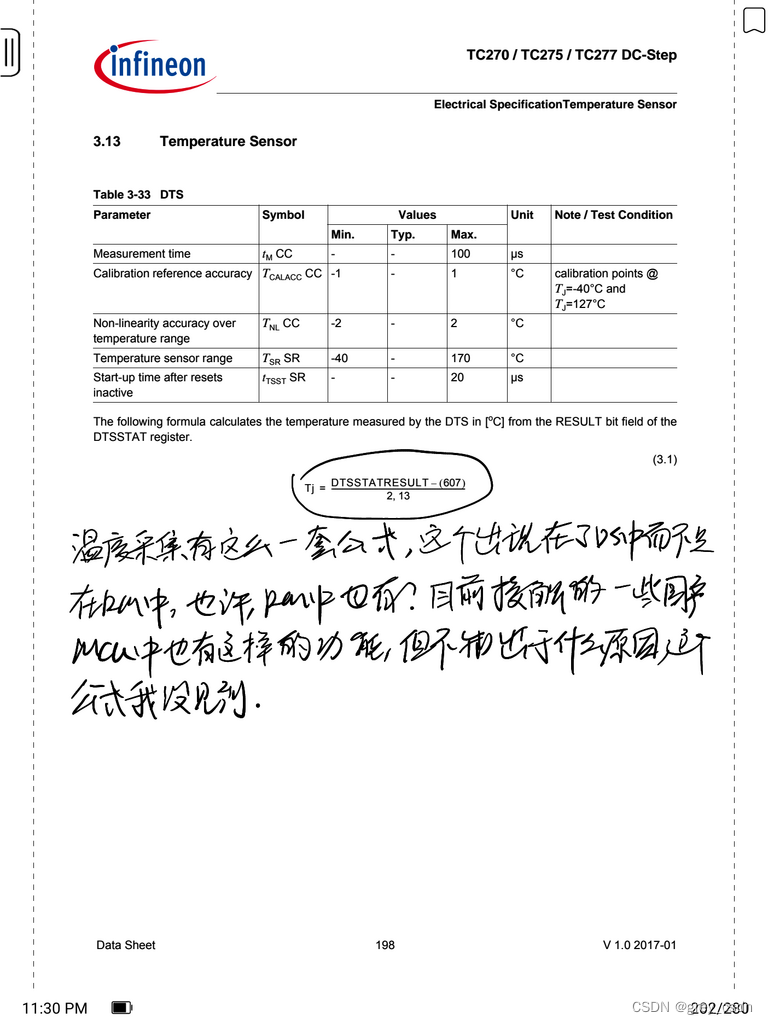 infineon
TC270 / TC275 / TC277 DC-Step
Electrical SpecificationTemperature Sensor
3.13 Temperature Sensor
Table 3-33 DTS
Parameter Symbol Values Unit Note / Test Condition
Min. Typ. Max.
Measurement time tM CC - - 100 µs
Calibration reference accuracy TCALACC CC -1 - 1 °C calibration points @
TJ=-40°C and
TJ=127°C
Non-linearity accuracy over
temperature range TNL CC -2 - 2 °C
Temperature sensor range TSR SR -40 - 170 °C
Start-up time after resets
inactive tTSST SR - - 20 µs
The following formula calculates the temperature measured by the DTS in [°C] from the RESULT bit field of the
DTSSTAT register.
(3.1)
Tj = DTSSTATRESULT – (607)
2, 13
温度采集有这么一套公式,这个出现在了DS中而不是
在RM中,也许,RM中也有?目前接触的一些国产
MCU中也有这样的功能,但不知出于什么原因,这个
公式我没见到.
Data Sheet 198 V 1.0 2017-01
11:30 PM
202/280